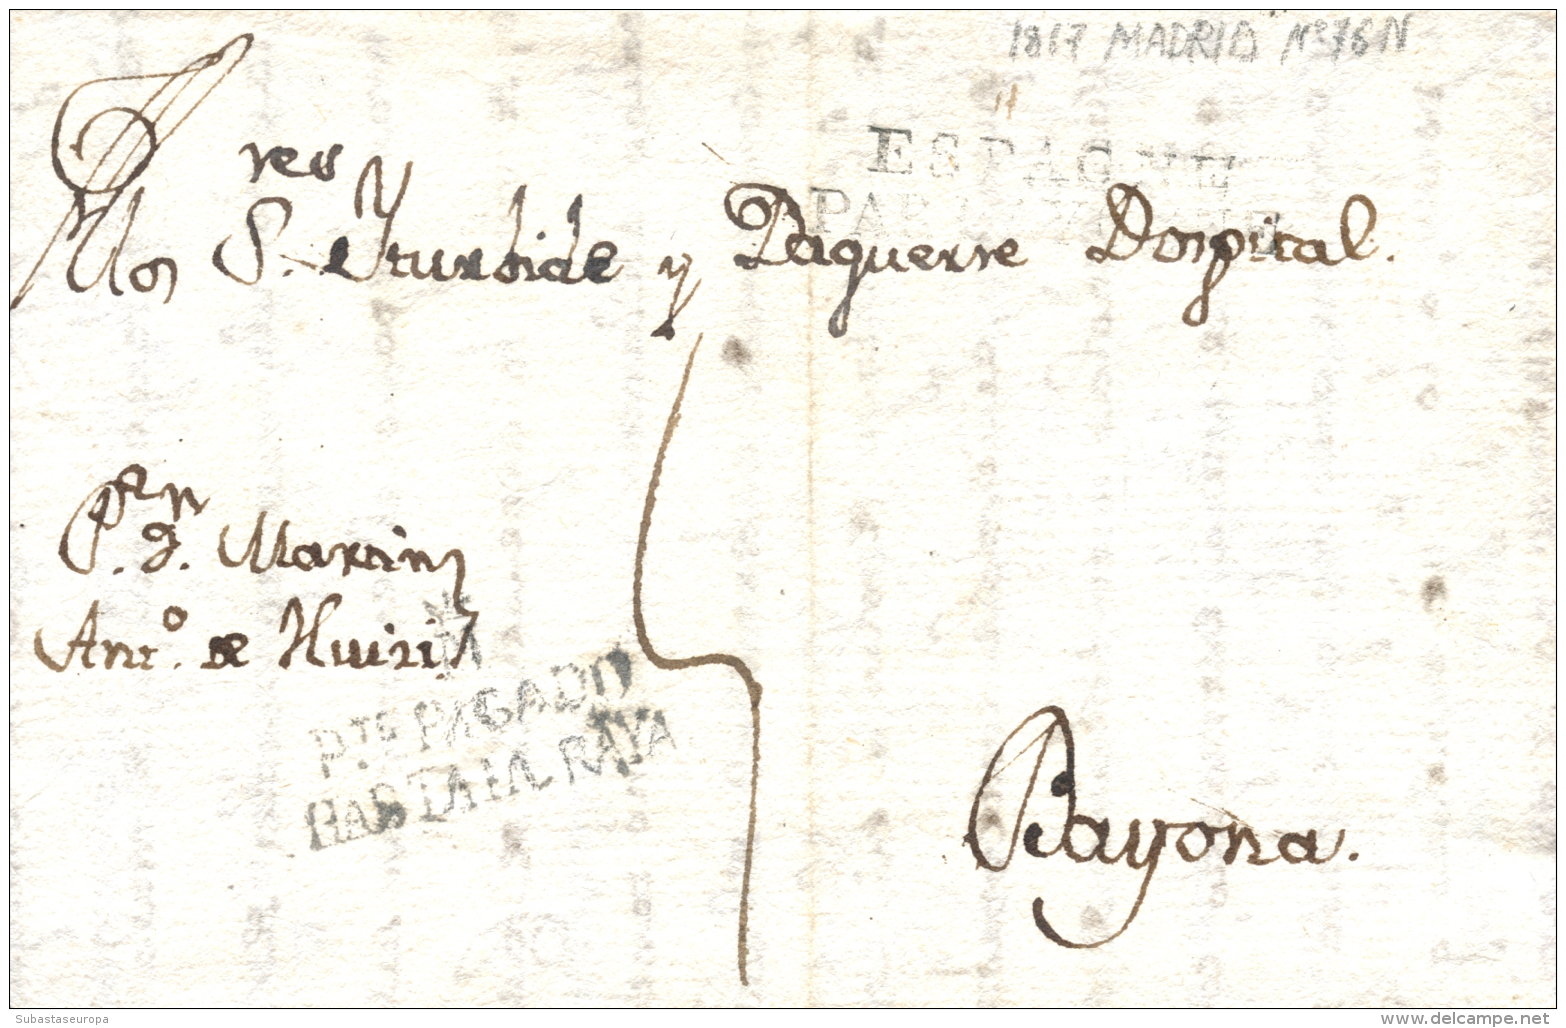 1817 MADRID Nº 76N
ESPAGNE
PAR BAYONNE
res
Mon S. Yturbide y Daguerre Dospital.
P.an dn. Martin
Anto. de Huizi
M
PTE PAGADO
HASTA LA RAYA
Bayona.
Subastaseuropa
delcampe.net